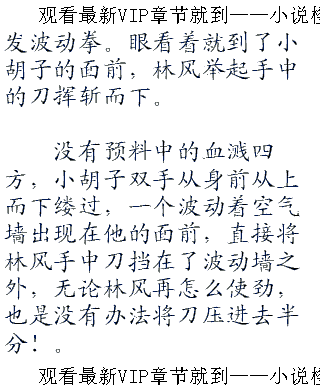 观看最新VIP章节就到——小说检
发波动拳。眼看着就到了小
胡子的面前，林风举起手中
的刀挥斩而下。
没有预料中的血溅四
方，小胡子双手从身前从上
而下缕过，一个波动着空气
墙出现在他的面前，直接将
林风手中刀挡在了波动墙之
外，无论林风再怎么使劲，
也是没有办法将刀压进去半
分！。
观看最新VIP章节就到——小说检